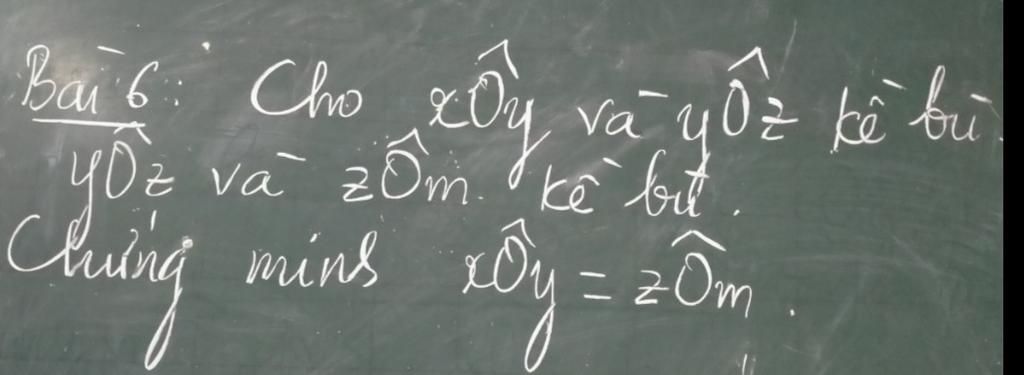 Bài 6: Cho xÔy và yÔz kề bù.
yÔz và zÔm kề bù.
Chứng minh xÔy = zÔm.